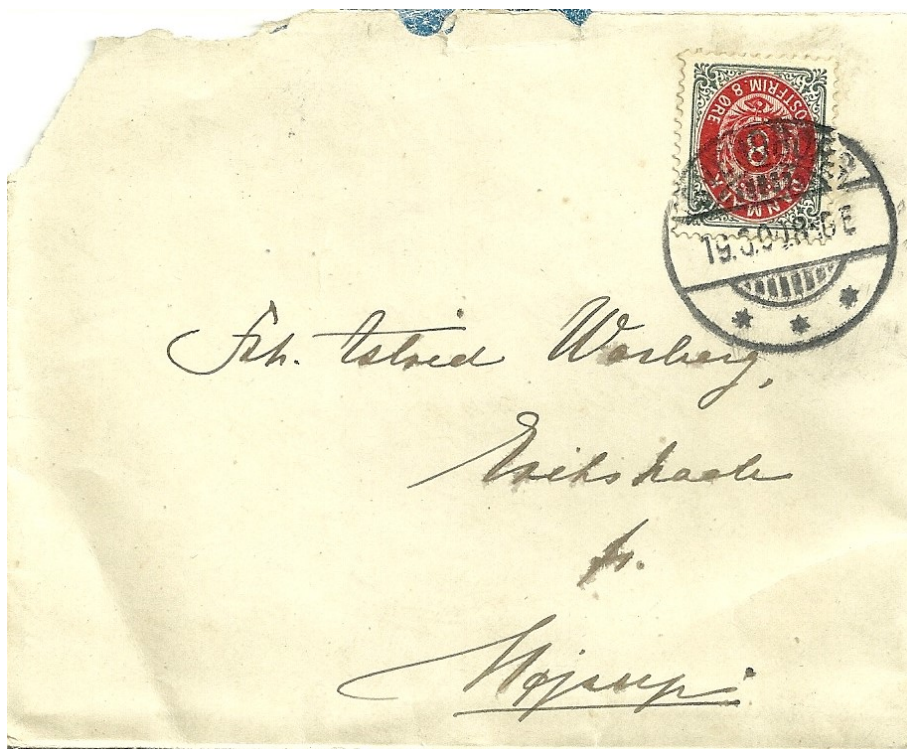 POSTFRIM. 8 ØRE
8
DANMARK
Frk. Astrid Warberg,
Erikshaab
p.
Højrup.